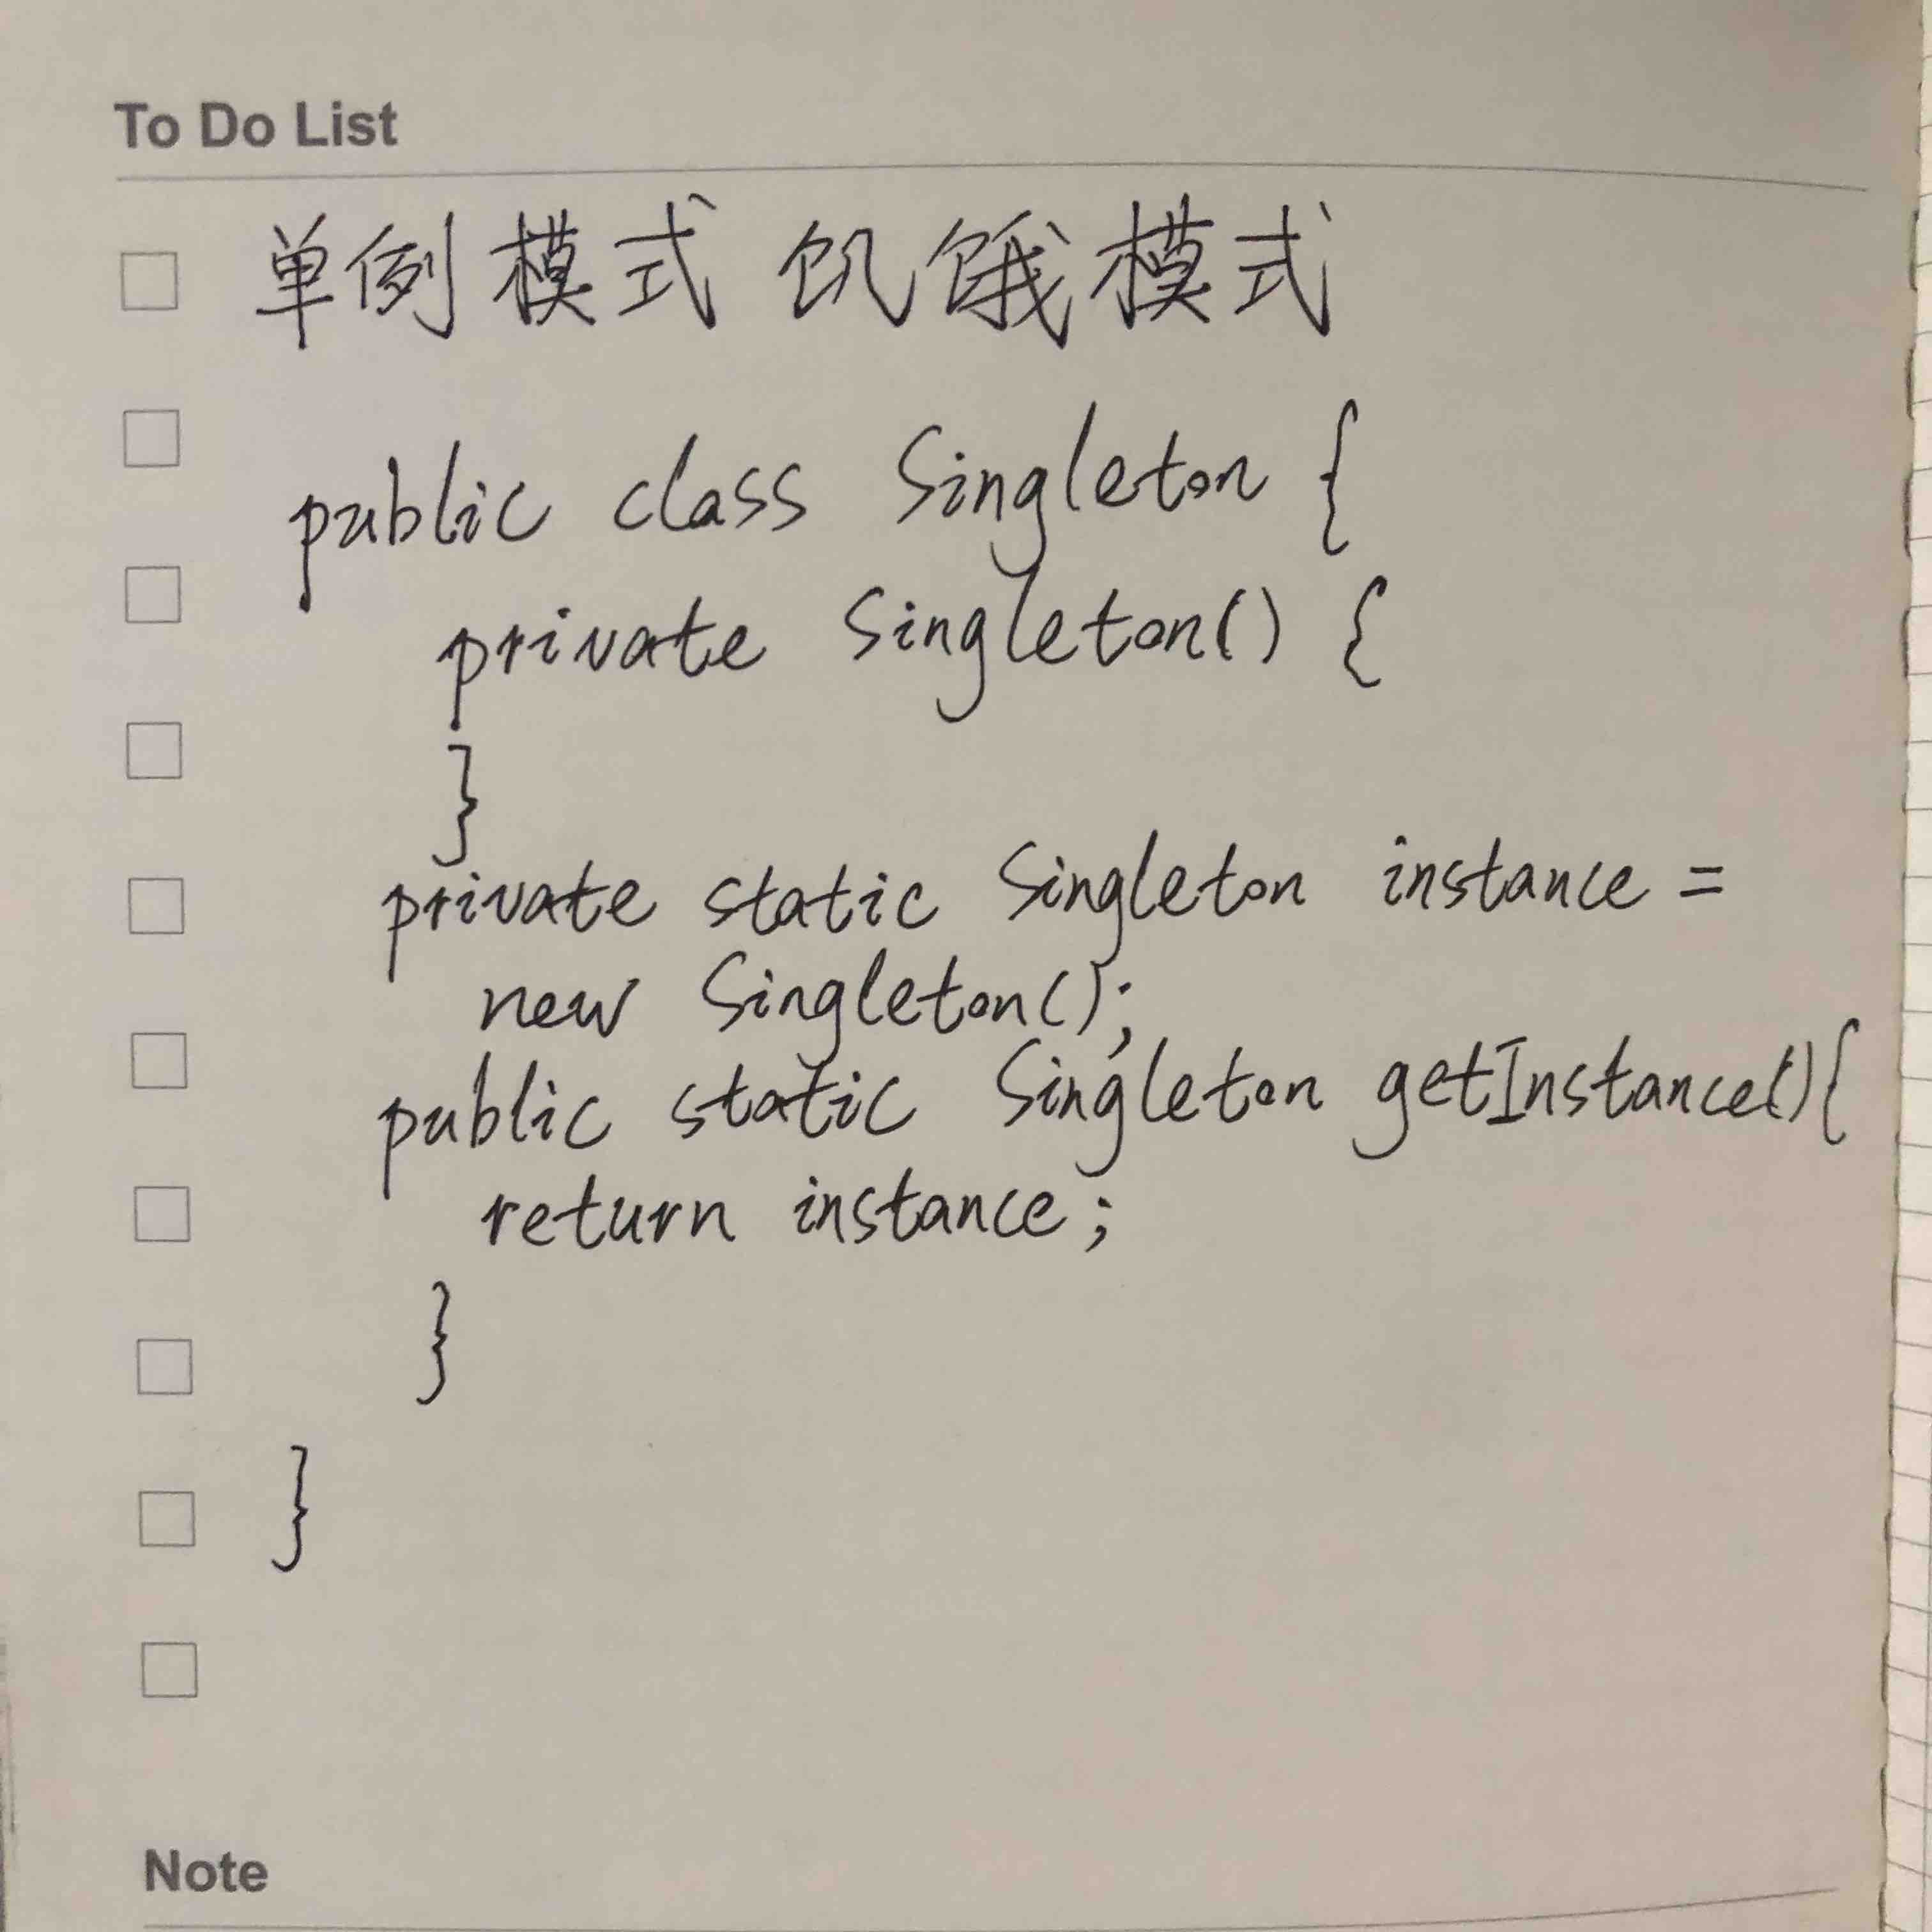 To Do List
单例模式 饥饿模式
public class Singleton {
private Singleton() {
}
private static Singleton instance =
new Singleton();
public static Singleton getInstance(){
return instance;
}
}
Note